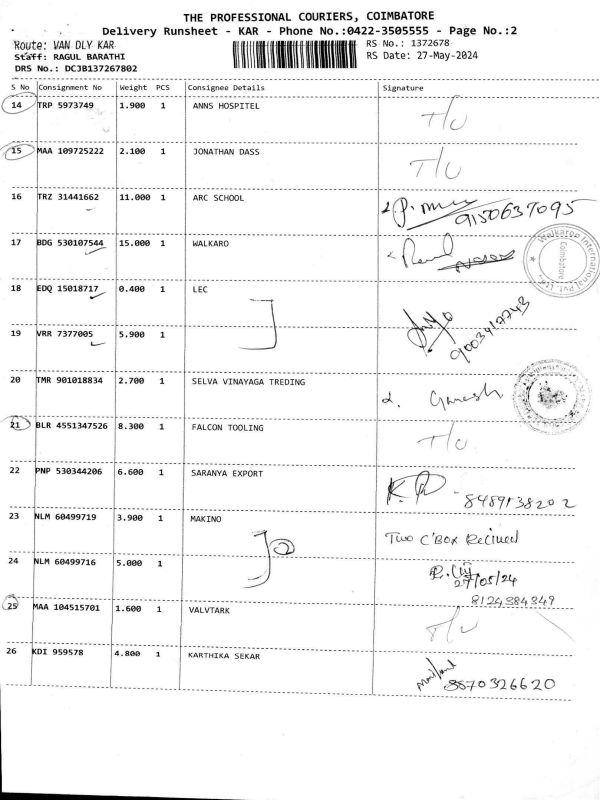 THE PROFESSIONAL COURIERS, COIMBATORE
Delivery Runsheet - KAR - Phone No.:0422-3505555 - Page No.:2
Route: VAN DLY KAR RS No.: 1372678
Staff: RAGUL BARATHI RS Date: 27-May-2024
DRS No.: DCJB137267802
S No Consignment No Weight PCS Consignee Details Signature
14 TRP 5973749 1.900 1 ANNS HOSPITEL T/U
15 MAA 109725222 2.100 1 JONATHAN DASS T/U
16 TRZ 31441662 11.000 1 ARC SCHOOL
9150637095
17 BDG 530107544 15.000 1 WALKARO
Walkaroo International Pvt. Ltd. Coimbatore
18 EDQ 15018717 0.400 1 LEC
9003417743
19 VRR 7377005 5.900 1
20 TMR 901018834 2.700 1 SELVA VINAYAGA TREDING
Ganesh
21 BLR 4551347526 8.300 1 FALCON TOOLING T/U
22 PNP 530344206 6.600 1 SARANYA EXPORT
8489138202
23 NLM 60499719 3.900 1 MAKINO
Two C'Box Recived
24 NLM 60499716 5.000 1
27/05/24
8124384349
25 MAA 104515701 1.600 1 VALVTARK T/U
26 KDI 959578 4.800 1 KARTHIKA SEKAR
8870326620